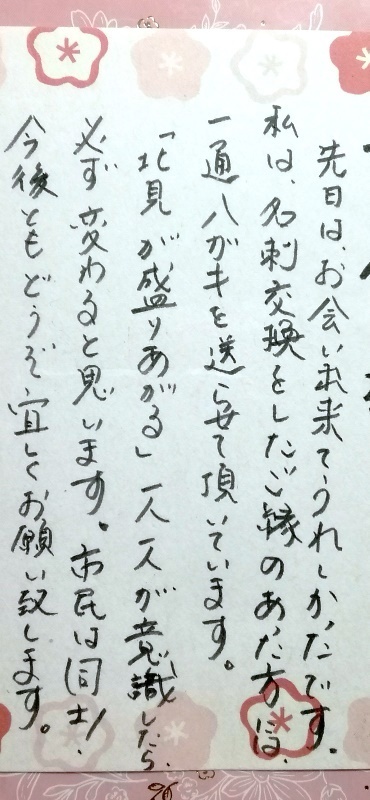 先日は、お会い出来てうれしかったです。
私は、名刺交換をしたご縁のあった方には、
一通ハガキを送らせて頂いています。
「北見が盛りあがる」一人一人が意識したら、
必ず変わると思います。市民は同士!
今後ともどうぞ宜しくお願い致します。